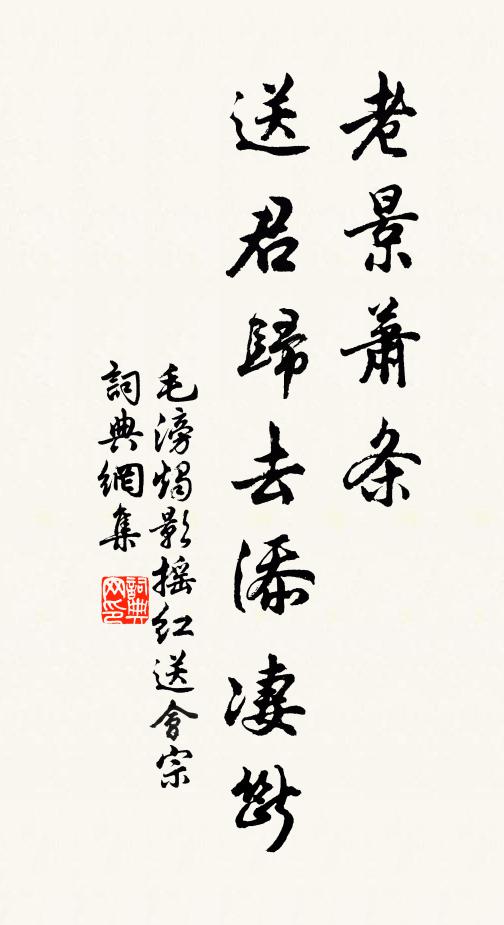 老景蕭条
送君歸去添凄断
毛滂燭影摇红送會宗
詞典網集
詞典网印